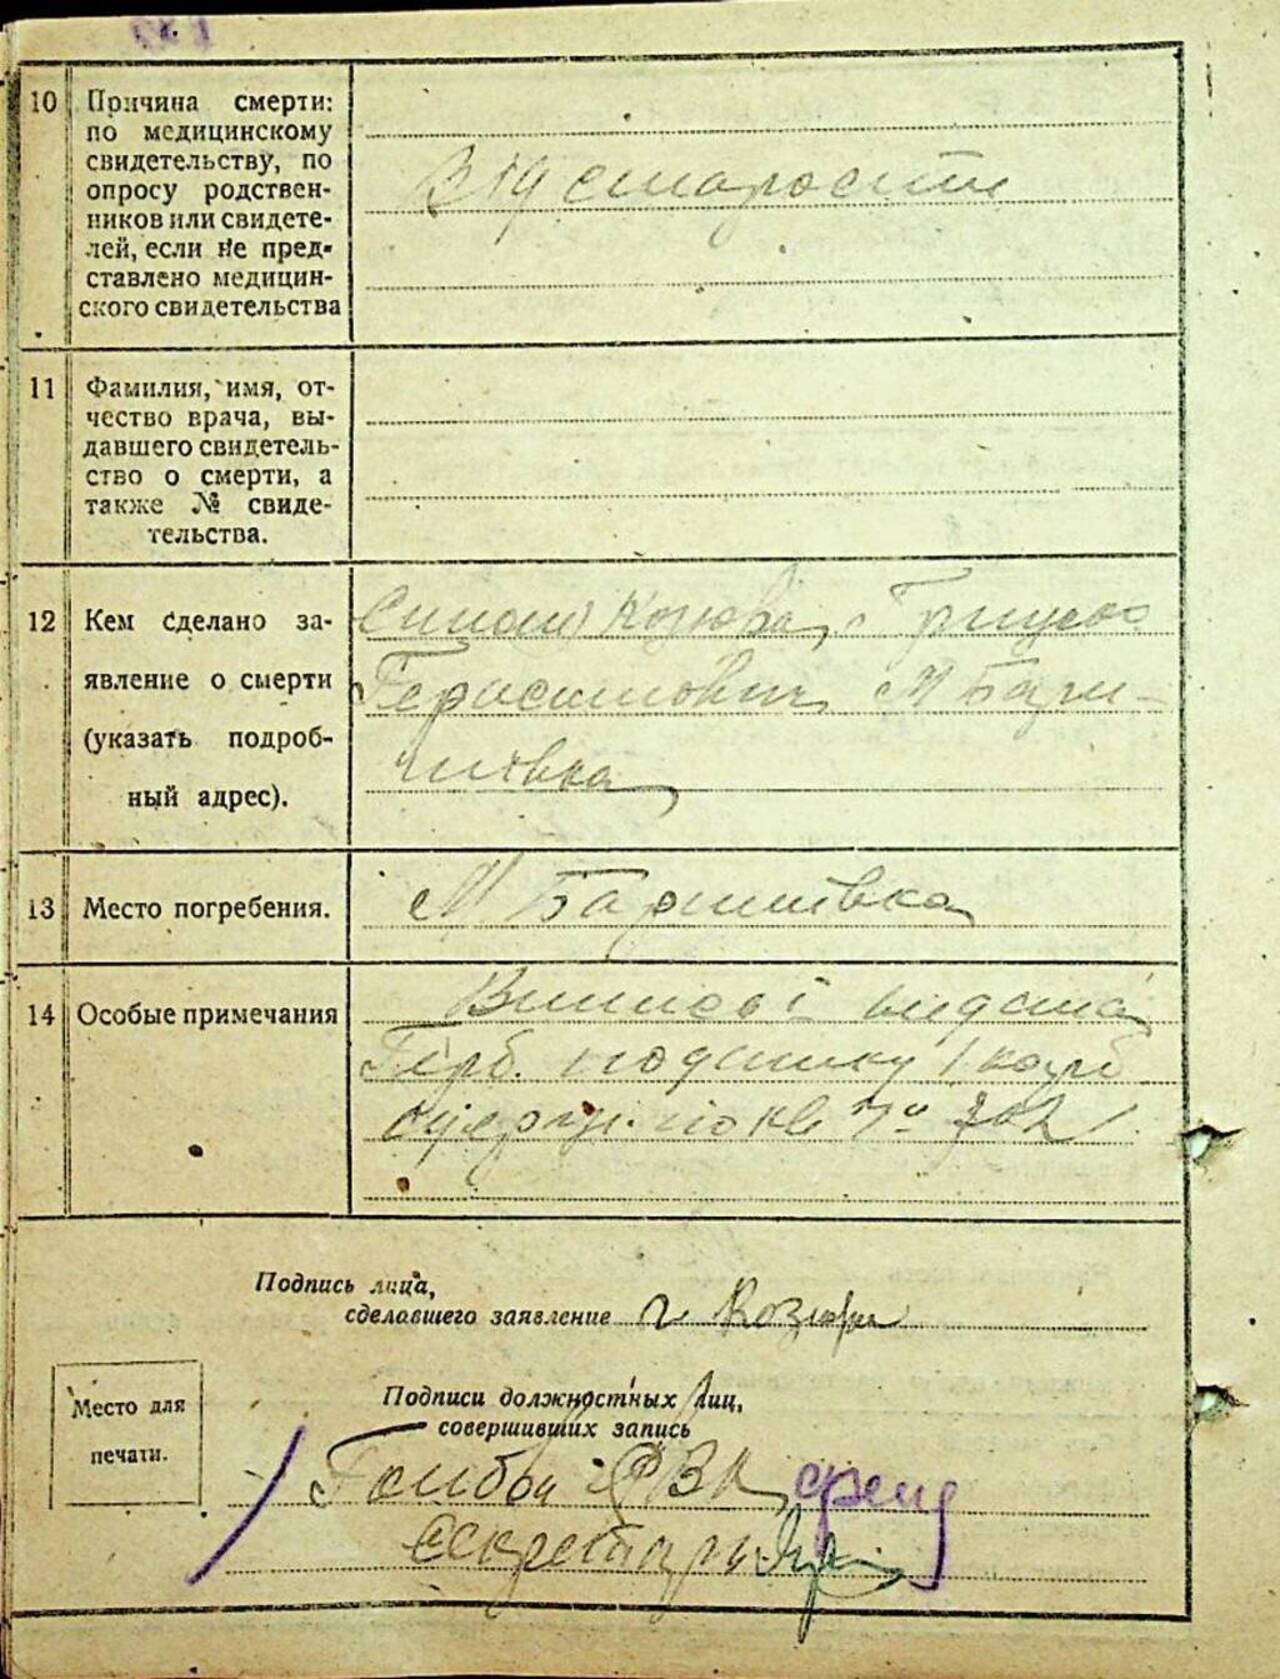 10 Причина смерти:
по медицинскому
свидетельству, по
опросу родствен-
ников или свидете-
лей, если не пред-
ставлено медицин-
ского свидетельства
Від старости
11 Фамилия, имя, от-
чество врача, вы-
давшего свидетель-
ство о смерти, а
также № свиде-
тельства.
12 Кем сделано за-
явление о смерти
(указать подроб-
ный адрес).
Козюра
Герасимович М Бари-
шівка
13 Место погребения.
М Баришівка
14 Особые примечания
видана
Герб. 1 карб
по кв
Подпись лица,
сделавшего заявление Г Козюра
Место для
печати.
Подписи должностных лиц,
совершивших запись
РВК
Секретарь